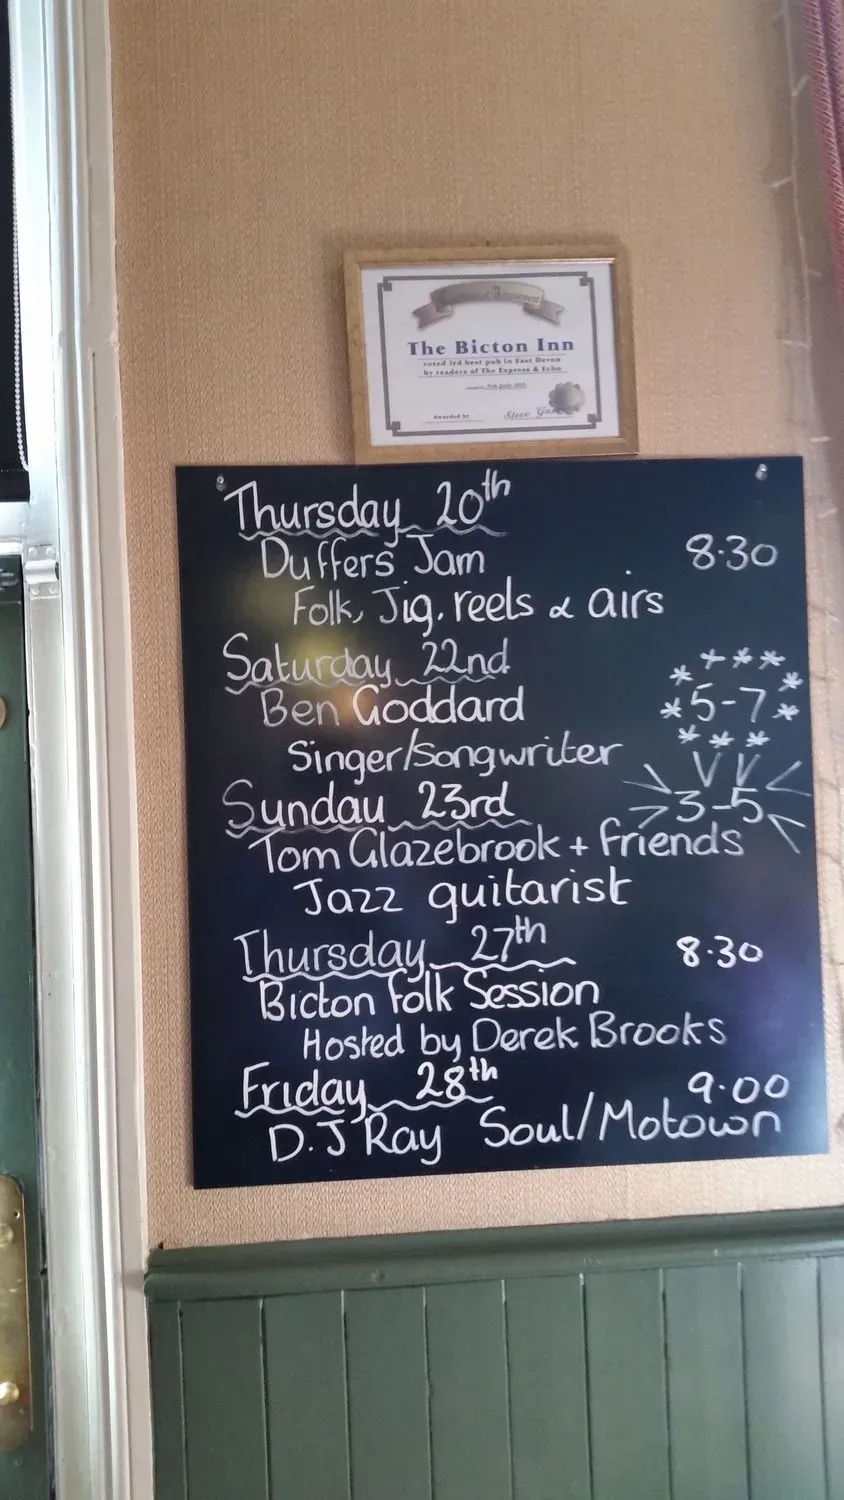 The Bicton Inn
voted 3rd best pub in East Devon
by readers of The Express & Echo
Awarded by
Steve
Thursday 20th
Duffers Jam 8.30
Folk, Jig, reels & airs
Saturday 22nd
Ben Goddard 5-7
Singer/Songwriter
Sunday 23rd 3-5
Tom Glazebrook + friends
Jazz guitarist
Thursday 27th 8.30
Bicton Folk Session
Hosted by Derek Brooks
Friday 28th 9.00
D.J Ray Soul/Motown